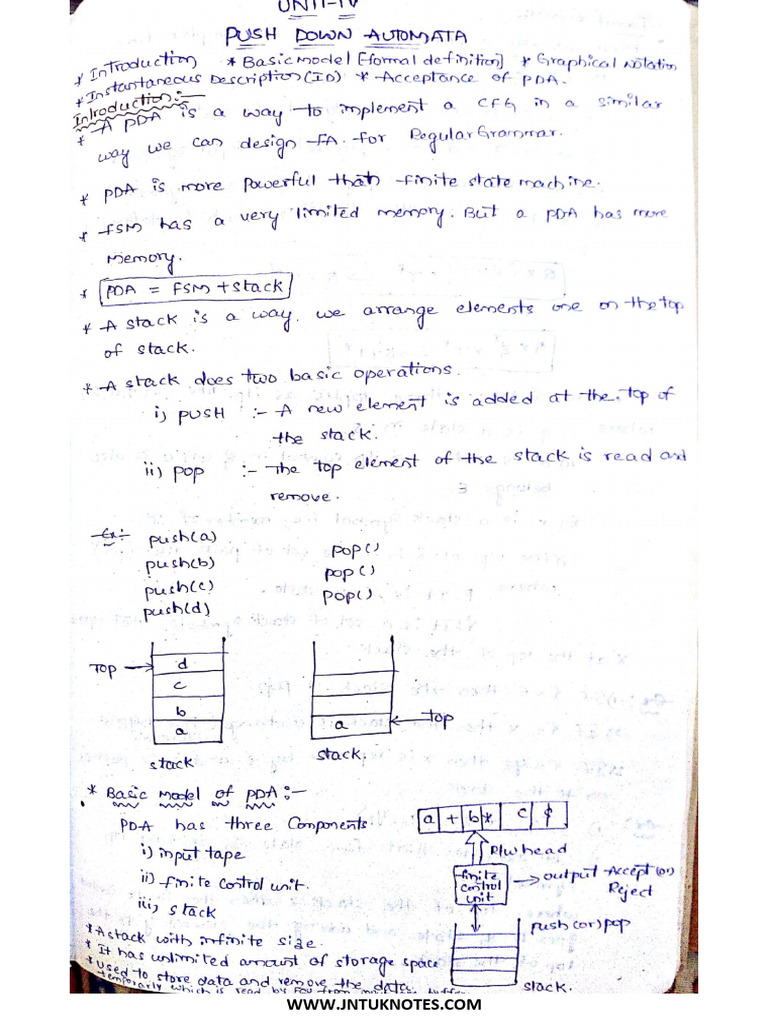 UNIT-IV
PUSH DOWN AUTOMATA
* Introduction * Basic model [formal definition] * Graphical Notation
* Instantaneous Description (ID) * Acceptance of PDA.
Introduction:-
* A PDA is a way to implement a CFG in a similar
way we can design FA for Regular Grammar.
* PDA is more powerful than finite state machine.
* FSM has a very limited memory. But a PDA has more
memory.
* PDA = FSM + stack
* A stack is a way, we arrange elements one on the top
of stack.
* A stack does two basic operations.
i) PUSH :- A new element is added at the top of
the stack.
ii) POP :- The top element of the stack is read and
remove.
Ex:- push(a) pop()
push(b) pop()
push(c) pop()
push(d)
TOP d
c
b
a
stack
a top
stack
* Basic Model of PDA :-
PDA has three Components.
i) input tape
ii) finite control unit.
iii) stack
a + b * c $
R/w head
finite control unit
output Accept (or) Reject
push (or) pop
stack.
* A stack with infinite size.
* It has unlimited amount of storage space
* Used to store data and remove the data
temporarly which is read by FCU from
WWW.JNTUKNOTES.COM